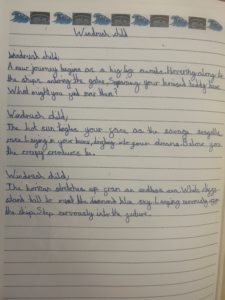 Windrush child
Windrush child,
A new journey begins as a big fog awaits. Hovering along to
the ships, entering the gates. Squeezing your teddy
What might you find over there?
Windrush child,
The hot sun tingles your face as the savage seagulls
in your bones, into your dreams. Below you
the creepy creatures lie.
Windrush child,
The horizon stretches up from an endless sea. White cliffs
stand tall to meet the diamond blue sky. Leaping curiously off
the ship. Step curiously into the future.